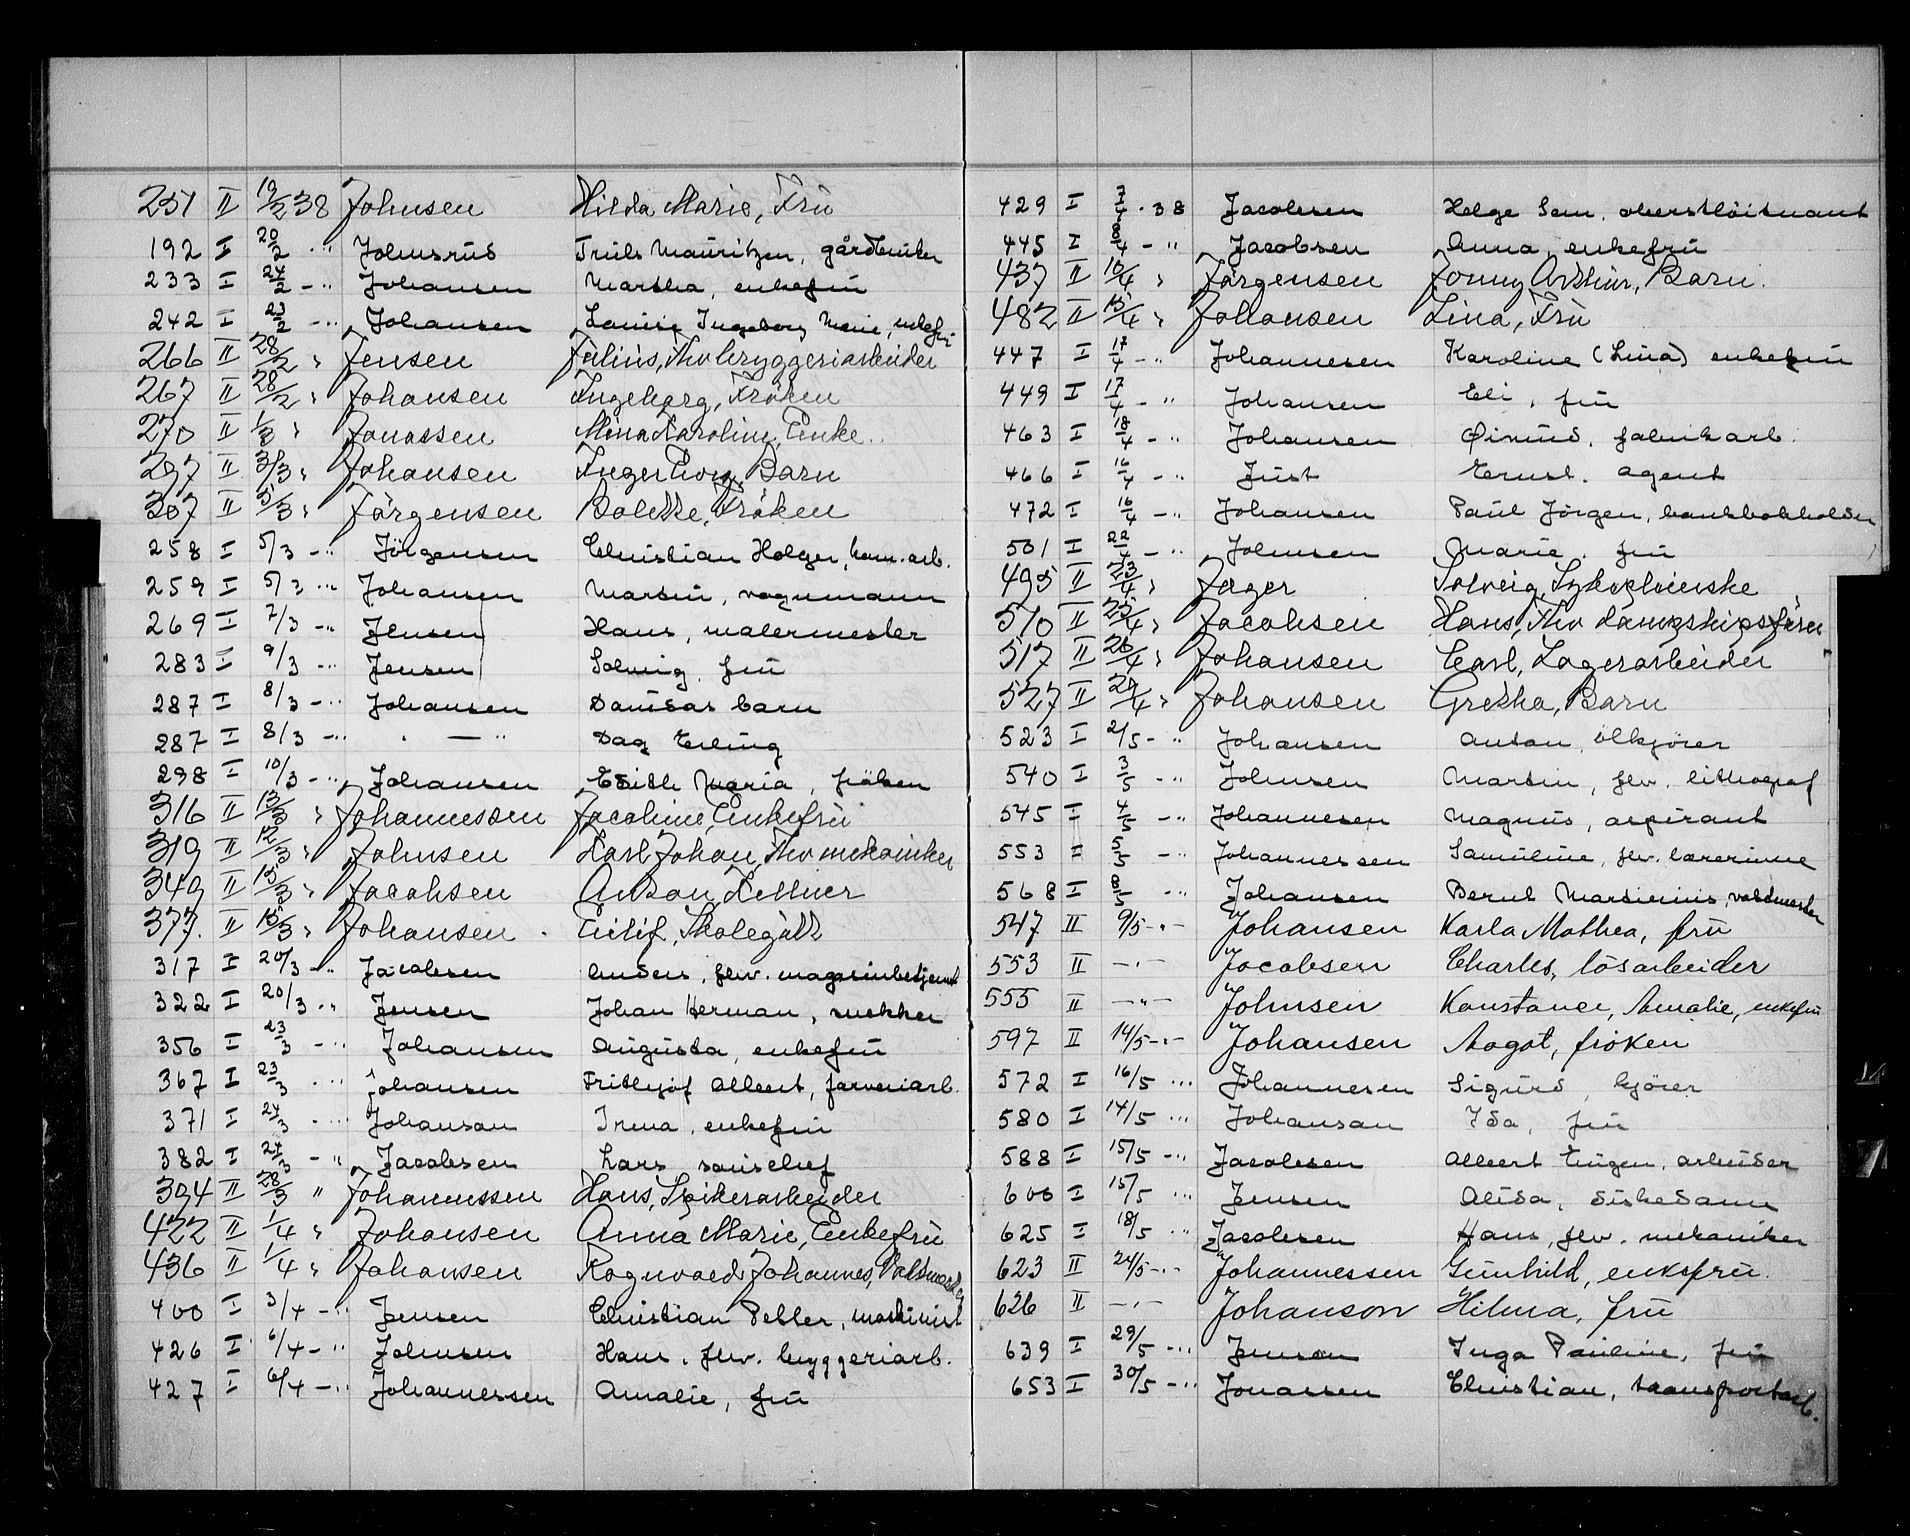 251 II 19/2 38 Johnsen Hilda Marie, Frü
192 I 20/2 -" Johnsrud Truls Mauritzen,
233 I 24/2 -" Johansen Martha, enkefrü
242 I 23/2 -" Johansen Lovise Ingeborg Marie, enkefrü
266 II 28/2 " Jensen Julius, Fhv bryggeriarbeider
267 II 28/2 " Johansen Ingeborg, Fröken
270 II 1/3 " Jonassen Mina Karoline, Enke.
297 II 3/3 " Johansen Inger Barn
307 II 5/3 " Jörgensen Bolette, Fröken
258 I 5/3 -" Jörgensen Christian Holger, kom. arb.
259 I 5/3 -" Johansen Martin, vognmann
269 I 7/3 -" Jensen Hans, malermester
283 I 9/3 -" Jensen Solveig, frü
287 I 8/3 -" Johansen barn
287 I 8/3 -" - — " Dag Erling
298 I 10/3 -" Johansen Edith Maria, fröken
316 II 13/3 " Johannessen Jacobine, Enkefrü
319 II 12/3 " Johnsen Karl Johan, Fhv mekaniker
349 II 13/3 " Jacobsen Anton, Kellner
377. II 15/3 " Johansen Eilif, Skolegütt
317 I 20/3 -" Jacobsen Anders, fhv. magasinbetjent
322 I 20/3 -" Jensen Johan Herman, snekker
356 I 23/3 -" Johansen Augusta, enkefrü
367 I 23/3 -" Johansen Frithjof Albert, farveriarb.
371 I 24/3 -" Johansen Irena, enkefrü
382 I 24/3 -" Jacobsen Lars
394 II 28/3 " Johannessen Hans, Spikerarbeider
422 II 1/4 " Johansen Anna Marie, Enkefrü
436 II 1/4 " Johansen Ragnvald Johannes,
400 I 3/4 -" Jensen Christian Petter, maskinist
426 I 6/4 -" Johnsen Hans, fhv. bryggeriarb.
427 I 6/4 -" Johannessen Amalie, frü
429 I 7/4 -38 Jacobsen Helge Sem, oberstlöitnant
445 I 8/4 -" Jacobsen Anna, enkefrü
437 II 10/4 " Jörgensen Jonny Arthur, Barn.
482 II 15/4 " Johansen Lina, Frü
447 I 17/4 -" Johannesen Karoline (Lina) enkefrü
449 I 17/4 -" Johansen Eli, frü
463 I 18/4 -" Johansen Øivind, fabrikarb.
466 I 16/4 -" Just Ernst, agent
472 I 16/4 -" Johansen Paul Jörgen, bankbokholder
501 I 22/4 -" Johnsen Marie, frü
495 II 23/4 " Jager Solveig, Sykepleierske
510 II 25/4 " Jacobsen Hans, Fhv dampskipsförer
517 II 26/4 " Johansen Carl, Lagerarbeider
527 II 29/4 " Johansen Gretha, Barn
523 I 2/5 -" Johansen Anton, ölkjörer
540 I 3/5 -" Johnsen Martin, fhv. lithograf
545 I 4/5 -" Johannesen Magnus, aspirant
553 I 5/5 -" Johannessen Samuline, fhv. lærerinne
568 I 8/5 -" Johansen Bernt Martinius, vaktmester
547 II 9/5 -"- Johansen Karla Mathea, frü
553 II -"- Jacobsen Charles, lösarbeider
555 II -"- Johnsen Konstance, Amalie, enkefrü
597 II 14/5 -"- Johansen Aagot, fröken
572 I 16/5 -" Johannesen Sigurd, kjörer
580 I 14/5 -" Johansen Ida, frü
588 I 15/5 -" Jacobsen Albert Eugen, arbeider
600 I 15/5 -" Jensen Alida, diskedame
625 I 18/5 -" Jacobsen Hans, fhv. mekaniker
623 II 24/5 -"- Johannessen Gunhild, enkefrü.
626 II -"- Johanson Hilma, frü
639 I 29/5 -" Jensen Inga Pauline, frü
653 I 30/5 -" Jonassen Christian, transportarb.